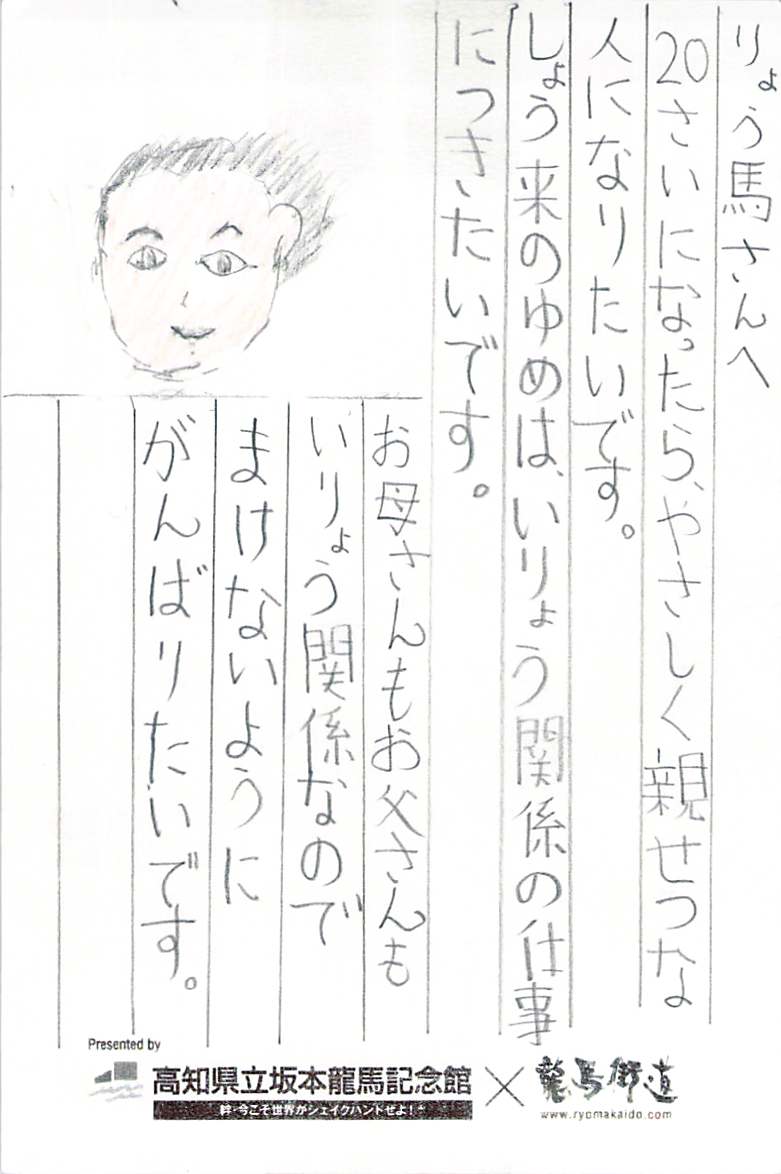 りょう馬さんへ
20さいになったら、やさしく親せつな
人になりたいです。
しょう来のゆめは、いりょう関係の仕事
につきたいです。
お母さんもお父さんも
いりょう関係なので
まけないように
がんばりたいです。
Presented by
高知県立坂本龍馬記念館
絆・今こそ世界がシェイクハンドせよ!
×
龍馬街道
www.ryomakaido.com